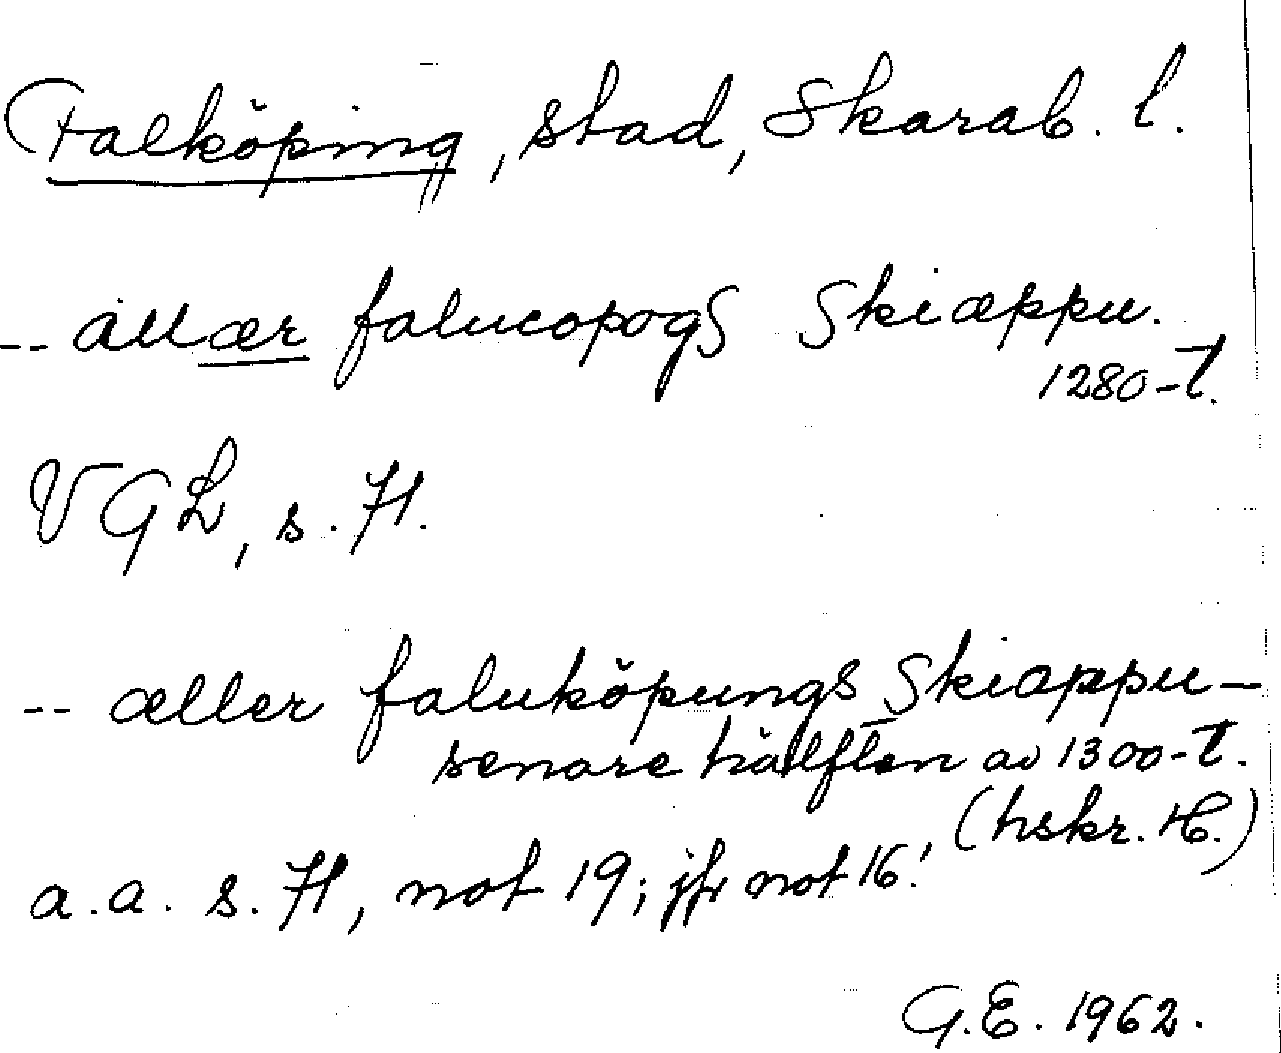 Falköping, stad, Skarab. l.
-- allær falucopogs skiæppu.
1280-t.
VGL, s. 71.
-- æller faluköpungs skiæppu -
senare hälften av 1300-t.
(hskr. H.)
a.a. s. 71, not 19; jfr not 16!
G.E. 1962.